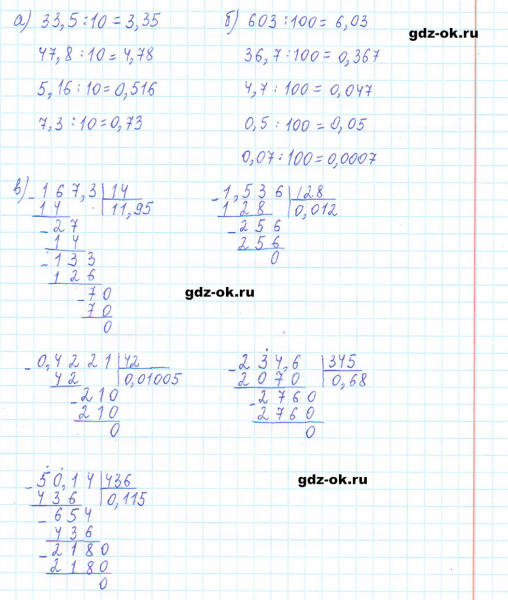 а) 33,5 : 10 = 3,35
б) 603 : 100 = 6,03
gdz-ok.ru
47,8 : 10 = 4,78
36,7 : 100 = 0,367
5,16 : 10 = 0,516
4,7 : 100 = 0,047
7,3 : 10 = 0,73
0,5 : 100 = 0,05
0,07 : 100 = 0,0007
в) - 167,3 | 14
14 | 11,95
- 27
14
- 133
126
- 70
70
0
- 1,536 | 128
128 | 0,012
- 256
256
0
gdz-ok.ru
- 0,4221 | 42
42 | 0,01005
- 210
210
0
- 234,6 | 345
2070 | 0,68
- 2760
2760
0
- 50,14 | 436
436 | 0,115
- 654
436
- 2180
2180
0
gdz-ok.ru